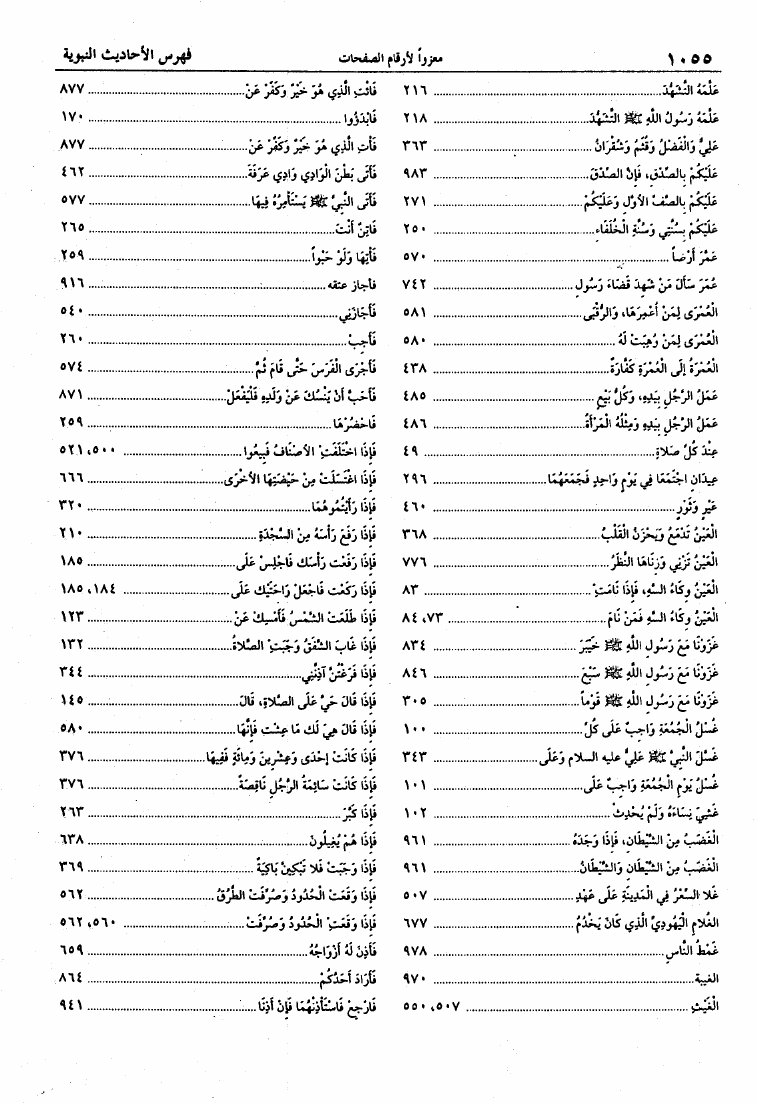 ١٠٥٥ معزواً لأرقام الصفحات فهرس الأحاديث النبوية
عَلَّمَهُ التَّشَهُّدَ ........ ٢١٦
عَلَّمَهُ رَسُولُ اللَّهِ ﷺ التَّشَهُّدَ ........ ٢١٨
عَلِيٌّ وَالْفَضْلُ وَقُثَمُ وَشُقْرَانُ ........ ٣٦٣
عَلَيْكُمْ بِالصِّدْقِ، فَإِنَّ الصِّدْقَ ........ ٩٨٣
عَلَيْكُمْ بِالصَّفِّ الأَوَّلِ وَعَلَيْكُمْ ........ ٢٧١
عَلَيْكُمْ بِسُنَّتِي وَسُنَّةِ الْخُلَفَاءِ ........ ٢٥٠
عَمَرَ أَرْضاً ........ ٥٧٠
عُمَرَ سَأَلَ مَنْ شَهِدَ قَضَاءَ رَسُولِ ........ ٧٤٢
الْعُمْرَى لِمَنْ أُعْمِرَهَا، وَالرُّقْبَى ........ ٥٨١
الْعُمْرَى لِمَنْ وُهِبَتْ لَهُ ........ ٥٨٠
الْعُمْرَةُ إِلَى الْعُمْرَةِ كَفَّارَةٌ ........ ٤٣٨
عَمَلُ الرَّجُلِ بِيَدِهِ، وَكُلُّ بَيْعٍ ........ ٤٨٥
عَمَلُ الرَّجُلِ بِيَدِهِ وَمِثْلُهُ الْمَرْأَةُ ........ ٤٨٦
عِنْدَ كُلِّ صَلاَةٍ ........ ٤٩
عِيدَانِ اجْتَمَعَا فِي يَوْمٍ وَاحِدٍ فَجَمَعَهُمَا ........ ٢٩٦
عَيْرٍ وَثَوْرٍ ........ ٤٦٠
الْعَيْنُ تَدْمَعُ وَيَحْزَنُ الْقَلْبُ ........ ٣٦٨
الْعَيْنُ تَزْنِي وَزِنَاهَا النَّظَرُ ........ ٧٧٦
الْعَيْنُ وِكَاءُ السَّهِ، فَإِذَا نَامَتْ ........ ٨٣
الْعَيْنُ وِكَاءُ السَّهِ فَمَنْ نَامَ ........ ٧٣، ٨٤
غَزَوْنَا مَعَ رَسُولِ اللَّهِ ﷺ خَيْبَرَ ........ ٨٣٤
غَزَوْنَا مَعَ رَسُولِ اللَّهِ ﷺ سَبْعَ ........ ٨٤٦
غَزَوْنَا مَعَ رَسُولِ اللَّهِ ﷺ قَوْماً ........ ٣٠٥
غُسْلُ الْجُمُعَةِ وَاجِبٌ عَلَى كُلِّ ........ ١٠٠
غَسَّلَ النَّبِيَّ ﷺ عَلِيٌّ عليه السلام وَعَلَى ........ ٣٤٣
غُسْلُ يَوْمِ الْجُمُعَةِ وَاجِبٌ عَلَى ........ ١٠١
غَشِيَ نِسَاءَهُ وَلَمْ يُحْدِثْ ........ ١٠٢
الْغَضَبُ مِنَ الشَّيْطَانِ، فَإِذَا وَجَدَهُ ........ ٩٦١
الْغَضَبُ مِنَ الشَّيْطَانِ وَالشَّيْطَانُ ........ ٩٦١
غَلاَ السِّعْرُ فِي الْمَدِينَةِ عَلَى عَهْدِ ........ ٥٠٧
الْغُلاَمِ الْيَهُودِيِّ الَّذِي كَانَ يَخْدُمُ ........ ٦٧٧
غَمْطُ النَّاسِ ........ ٩٧٨
الغيبة ........ ٩٧٠
الْغَيْثِ ........ ٥٠٧، ٥٥٠
فَائْتِ الَّذِي هُوَ خَيْرٌ وَكَفِّرْ عَنْ ........ ٨٧٧
فَابْدَؤُوا ........ ١٧٠
فَأْتِ الَّذِي هُوَ خَيْرٌ وَكَفِّرْ عَنْ ........ ٨٧٧
فَأَتَى بَطْنَ الْوَادِي وَادِي عَرَفَةَ ........ ٤٦٢
فَأَتَى النَّبِيَّ ﷺ يَسْتَأْمِرُهُ فِيهَا ........ ٥٧٧
فَاتِنٌ أَنْتَ ........ ٢٦٥
فَأْتِهَا وَلَوْ حَبْواً ........ ٢٥٩
فأجاز عتقه ........ ٩١٦
فَأَجَازَنِي ........ ٥٤٠
فَأَجِبْ ........ ٢٦٠
فَأَجْرَى الْفَرَسَ حَتَّى قَامَ ثُمَّ ........ ٥٧٤
فَأَحَبَّ أَنْ يَنْسُكَ عَنْ وَلَدِهِ فَلْيَفْعَلْ ........ ٨٧١
فَاحْضُرْهَا ........ ٢٥٩
فَإِذَا اخْتَلَفَتِ الأَصْنَافُ فَبِيعُوا ........ ٥٠٠، ٥٢١
فَإِذَا اغْتَسَلَتْ مِنْ حَيْضَتِهَا الأُخْرَى ........ ٦٦٦
فَإِذَا رَأَيْتُمُوهُمَا ........ ٣٢٠
فَإِذَا رَفَعَ رَأْسَهُ مِنَ السَّجْدَةِ ........ ٢١٠
فَإِذَا رَفَعْتَ رَأْسَكَ فَاجْلِسْ عَلَى ........ ١٨٥
فَإِذَا رَكَعْتَ فَاجْعَلْ رَاحَتَيْكَ عَلَى ........ ١٨٤، ١٨٥
فَإِذَا طَلَعَتِ الشَّمْسُ فَأَمْسِكْ عَنْ ........ ١٢٣
فَإِذَا غَابَ الشَّفَقُ وَجَبَتِ الصَّلاَةُ ........ ١٣٢
فَإِذَا فَرَغْتُنَّ آذِنَّنِي ........ ٣٤٤
فَإِذَا قَالَ حَيَّ عَلَى الصَّلاَةِ، قَالَ ........ ١٤٥
فَإِذَا قَالَ هِيَ لَكَ مَا عِشْتَ فَإِنَّهَا ........ ٥٨٠
فَإِذَا كَانَتْ إِحْدَى وَعِشْرِينَ وَمِائَةً فَفِيهَا ........ ٣٧٦
فَإِذَا كَانَتْ سَائِمَةُ الرَّجُلِ نَاقِصَةً ........ ٣٧٦
فَإِذَا كَبَّرَ ........ ٢٦٣
فَإِذَا هُمْ يُغِيلُونَ ........ ٦٣٨
فَإِذَا وَجَبَتْ فَلاَ تَبْكِيَنَّ بَاكِيَةٌ ........ ٣٦٩
فَإِذَا وَقَعَتِ الْحُدُودُ وَصُرِّفَتِ الطُّرُقُ ........ ٥٦٢
فَإِذَا وَقَعَتِ الْحُدُودُ وَصُرِّفَتْ ........ ٥٦٠، ٥٦٢
فَأَذِنَ لَهُ أَزْوَاجُهُ ........ ٦٥٩
فَأَرَادَ أَحَدُكُمْ ........ ٨٦٤
فَارْجِعْ فَاسْتَأْذِنْهُمَا فَإِنْ أَذِنَا ........ ٩٤١